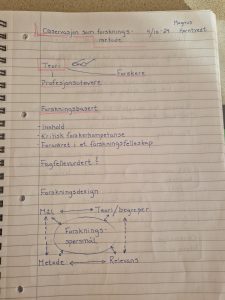 Observasjon som forsknings-
metode
4/10-24
Magnus
Teori
Forskere
Profesjonsutøvere
Forskningsbasert
- Innhold
- Kritisk forskerkompetanse
- Forankret i et forskningsfellesskap
Fagfellevurdert!
Forskningsdesign
Mål Teori/begreper
Forsknings-
spørsmål
Metode Relevans